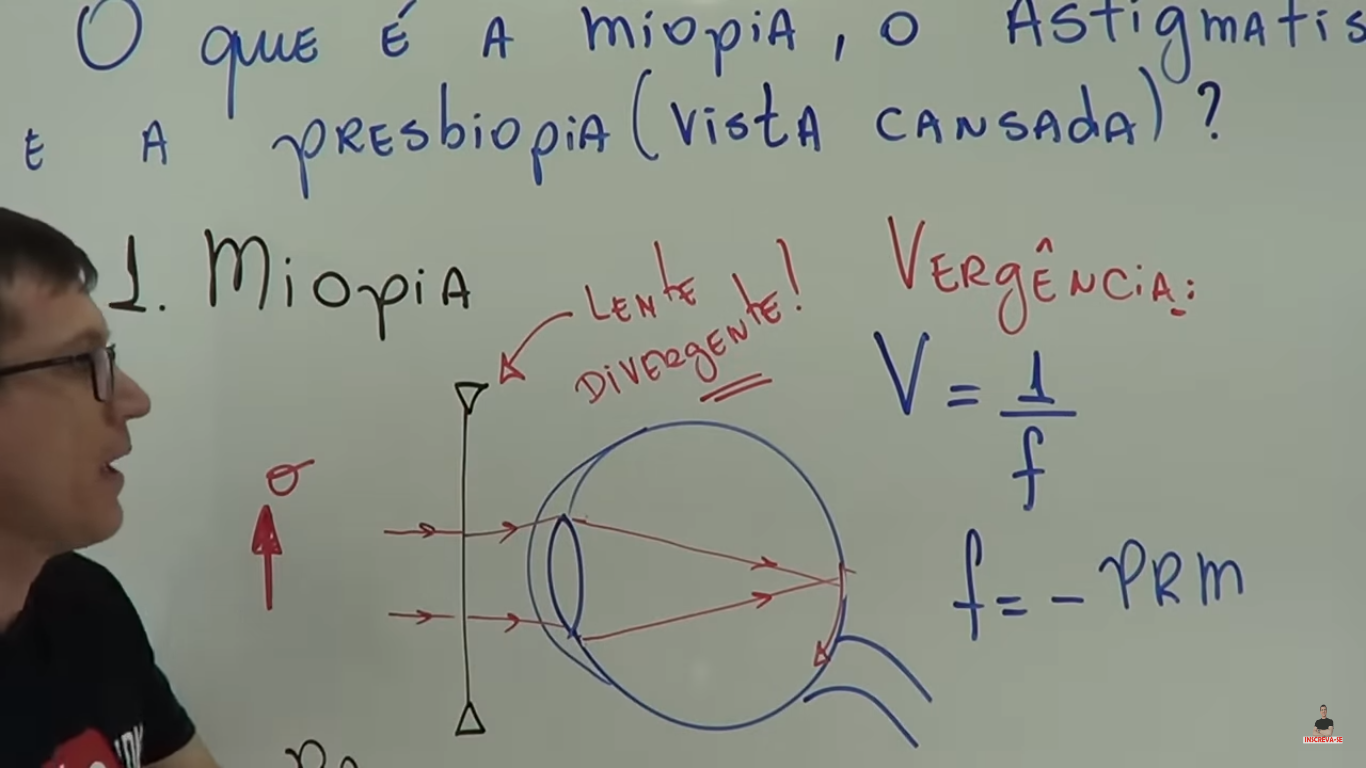 O que é a miopia, o Astigmatis
e a presbiopia (vista cansada)?
1. Miopia
Lente
divergente!
Vergência:
V = 1/f
o
f = - PRM
INSCREVA-SE